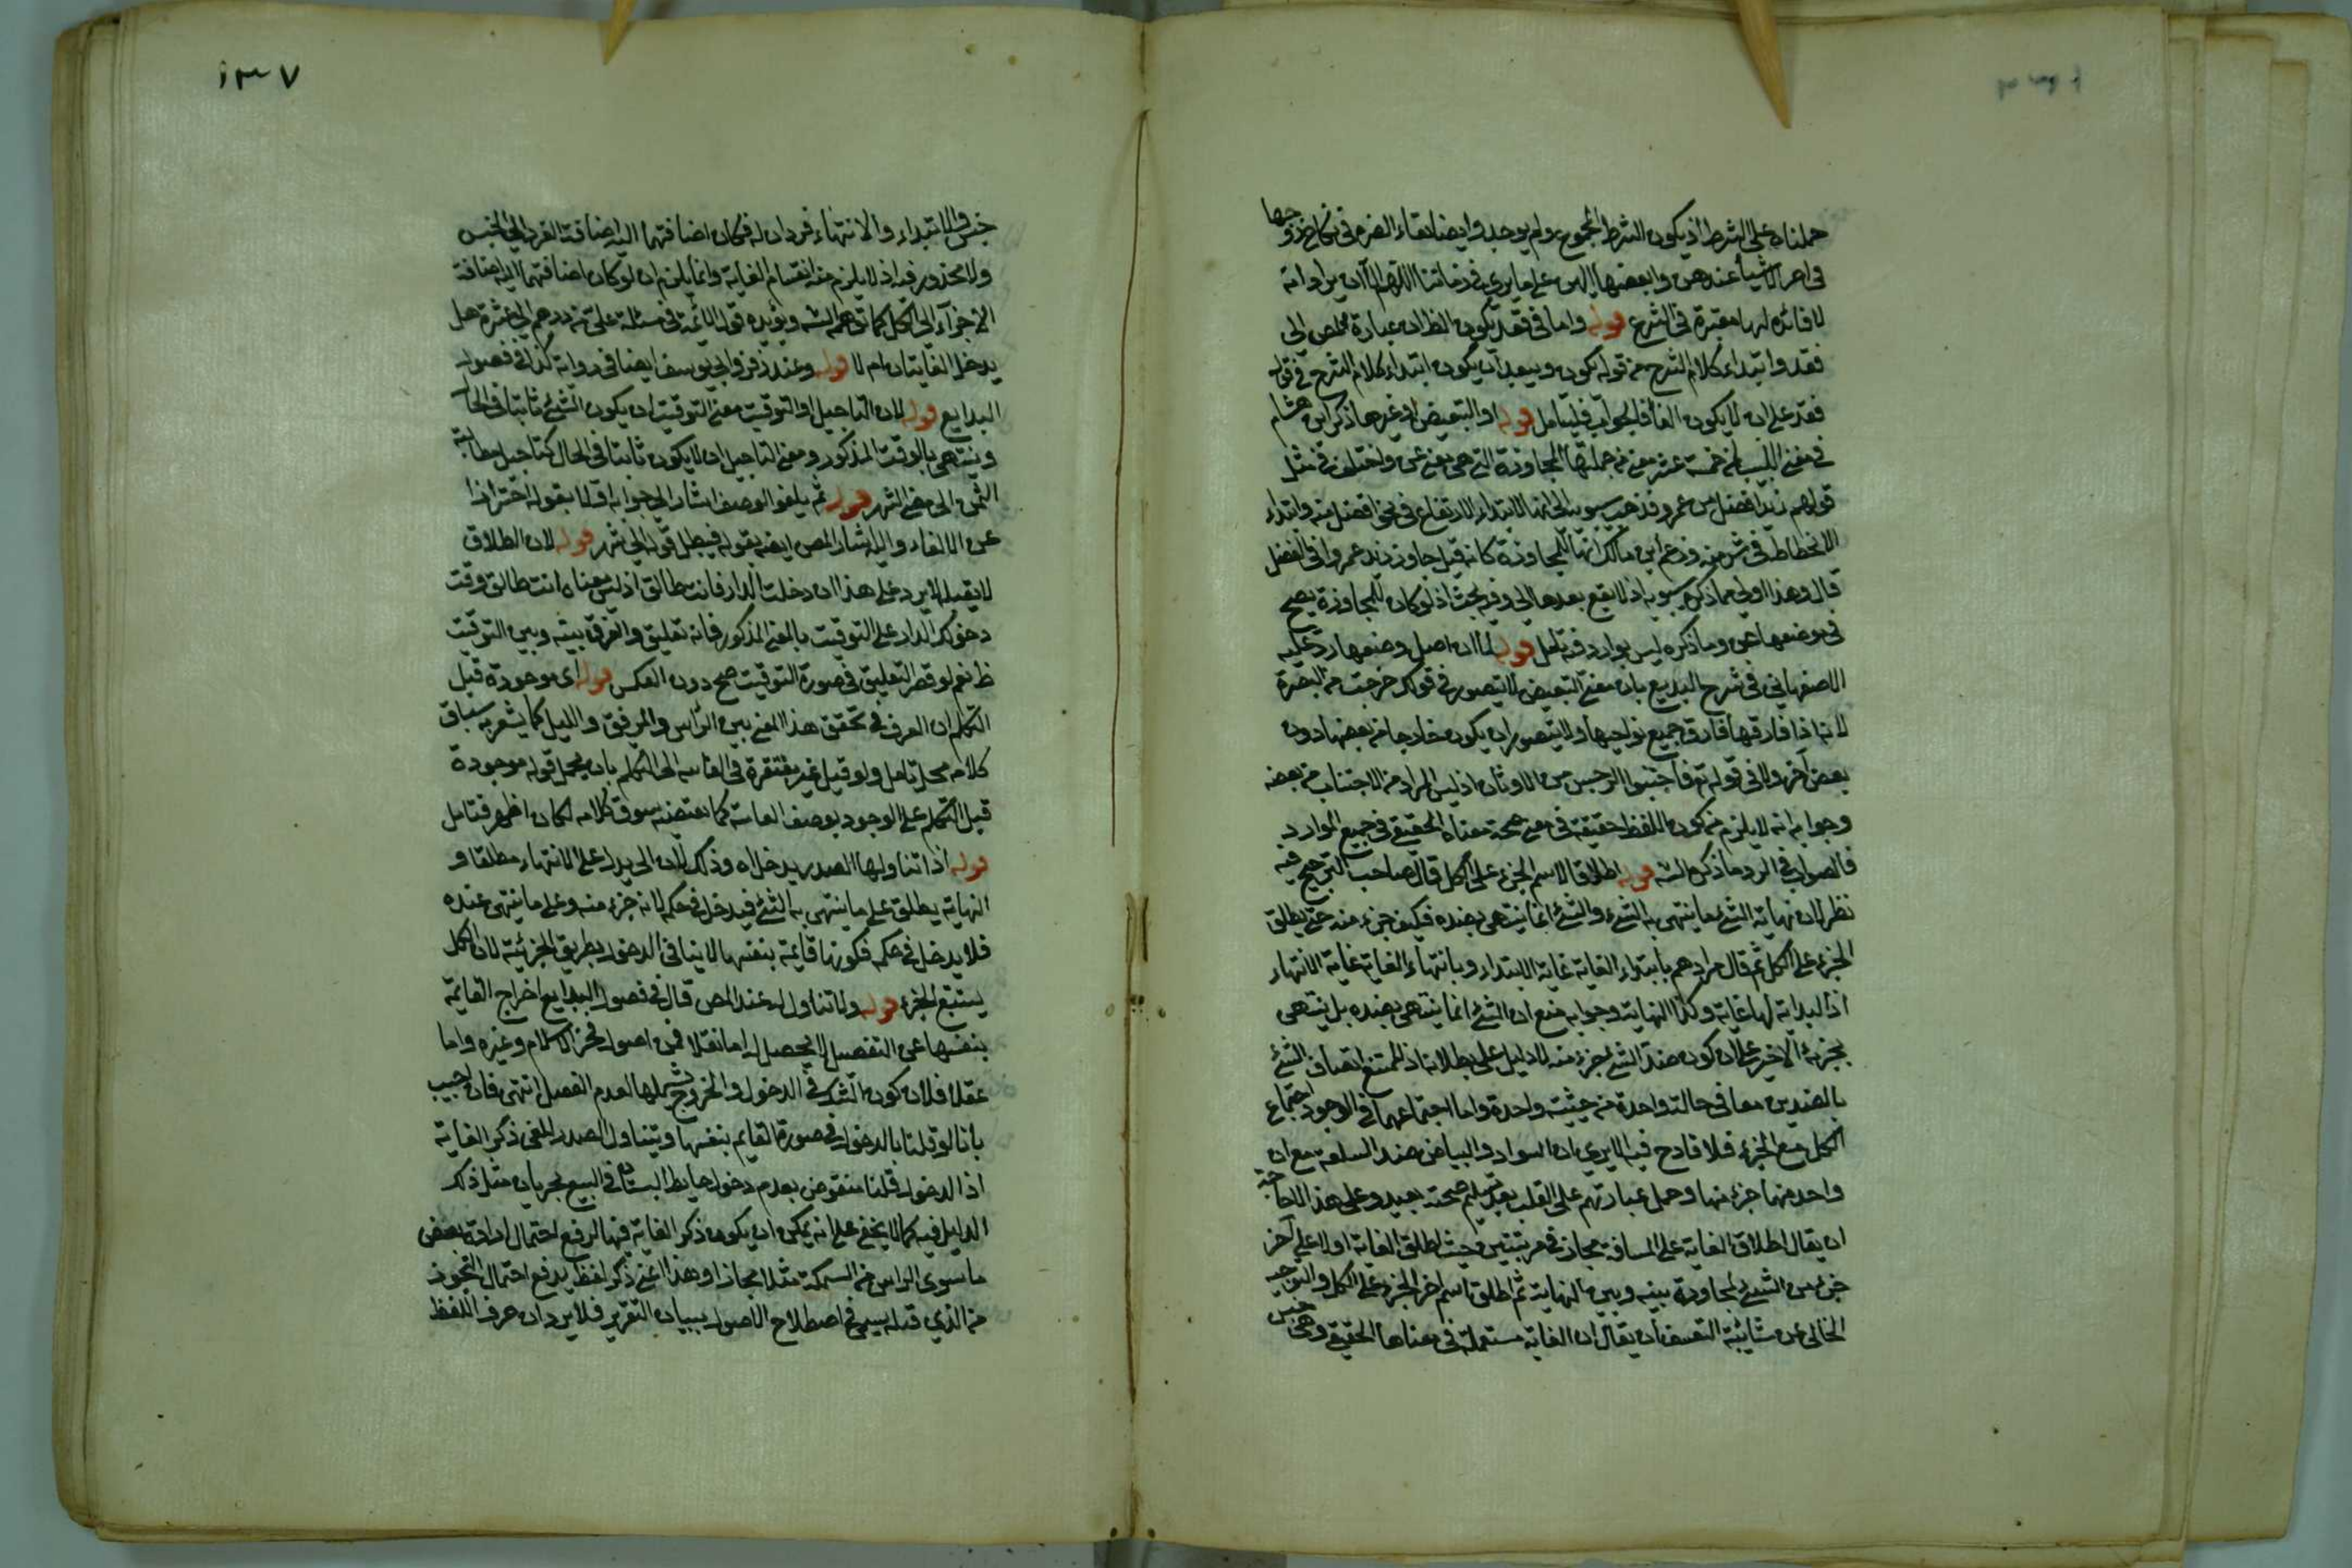 حملناه على الشرط اذ يكون الشرط المجموع ولم يوجد وايضا بقاء الضرر في نكاح زوجها
في امر عندهن وابعضها اليهن على ما يرى في زماننا اللهم الا ان يراد انه
لا فائدة لها معتبرة في الشرع قوله واما في فقد يكون الظ ان عبارة المص الى
فقد وابتداء كلام الشرح من قوله يكون ويبعد ان يكون ابتداء كلام الشرح في قوله
فقد على ان لا يكون الفا في الجواب فليتأمل قوله او التبعيض او غيرها ذكر ابن هشام
في مغني اللبيب لمن خمسة عشر معنى من جملتها المجاوزة التي هي معنى عن واختلف في مثل
قولهم زيد افضل من عمرو فذهب سيبويه الى انها لابتداء الارتفاع في نحو افضل منه وابتداء
الانحطاط في شر منه وزعم ابن مالك انها للمجاوزة كانه قيل جاوز زيد عمروا في الفضل
قال وهذا اولى مما ذكره سيبويه اذ لا يقع بعدها الى وفيه بحث اذ لو كان للمجاوزة يصح
في موضعها عن وما ذكره ليس بوارد فتامل قوله لما ان اصل وضعها رد عليه
الاصفهاني في شرح البديع بان معنى التبعيض لا يتصور في قولك خرجت من البصرة
لانه اذا فارقها فارق جميع نواحيها ولا يتصور ان يكون خارجا من بعضها دون
بعض آخر ولا في قوله تع فاجتنبوا الرجس من الاوثان اذ ليس المراد من الاجتناب من بعضه
وجوابه انه لا يلزم من كون اللفظ حقيقة في معنى صحة معناه الحقيقي في جميع الموارد
فالصواب في الرد ما ذكره الشه قوله اطلاقا لاسم الجزء على الكل قال صاحب الترجيح فيه
نظر لان نهاية الشئ ما ينتهى به الشئ والشئ انما ينتهى بضده فكيف جزء منه حتى يطلق
الجزء على الكل ثم قال مرادهم بابتداء الغاية غاية الابتداء وبانتهاء الغاية غاية الانتهاء
اذ البداية لها غاية وكذا النهاية وجوابه منع ان الشئ انما ينتهى بضده بل ينتهى
بجزئه الاخير على ان كون ضد الشئ جزء منه لا دليل على بطلانه اذ الممتنع اتصاف الشئ
بالضدين معا في حالة واحدة من حيثية واحدة واما اجتماعهما في الوجود اجتماع
الكل مع الجزء فلا قادح فيه الا يرى ان السواد والبياض ضد مع ان
واحد منهما جزء منها وحمل عبارتهم على القلب بعد تسليم صحته بعيد وعلى هذا الاحاجة
ان يقال اطلاق الغاية على المسافة مجاز في مرتبتين حيث اطلق الغاية اولا على آخر
جزء من الشئ لمجاورة بينه وبين النهاية ثم اطلق اسم اخر الجزء على الكل والتوجيه
الخالى عن شائبة التعسف ان يقال ان الغاية مستعملة في معناها الحقيقي وهي جنس
١٣٧
جنس والابتداء والانتهاء فردان له فكان اضافتهما اليه اضافة الفرد الى الجنس
ولا محذور فيه اذ لا يلزم منه انقسام الغاية وانما يلزم ان لو كان اضافتهما اليه اضافة
الاجزاء الى الكل كما توهم الشه ويؤيده قول الائمة في مسئلة على من درهم الى عشرة هل
يدخل الغايتان ام لا قوله وعند زفر وابي يوسف ايضا في رواية كذا في فصول
البدايع قوله لان التاجيل او التوقيت معنى التوقيت ان يكون الشئ ثابتا في الحال
وينتهى بالوقت المذكور ومعنى التاجيل ان لا يكون ثابتا في الحال كتاجيل مطالبة
الثمن الى مضى الشهر قوله ثم يلغو الوصف اشار الى جوابه اولا بقوله احترازا
عن الالغاء واليه اشار المص ايضا بقوله فيبطل قوله الى شهر قوله لان الطلاق
لا يقبله لا يرد على هذا ان دخلت الدار فانت طالق اذ ليس معناه انت طالق وقت
دخولك الدار على التوقيت بالمعنى المذكور فانه تعليق والفرق بينه وبين التوقيت
ظ نعم لو قصد التعليق في صورة التوقيت صح دون العكس قوله اى موجودة قبل
التكلم ان الفرق في تحقق هذا المعنى بين الراس والمرفق والليل كما يشعر به سباق
كلامه محل تامل ولو قيل غير مفتقرة في الغاية الى التكلم بان يحمل قوله موجودة
قبل التكلم على الوجود بوصف الغاية كما يقتضيه سوق كلامه لكان اظهر فتامل
قوله اذا تناولها الصدر يدخل اه وذلك لان الى يدل على الانتهاء مطلقا و
النهاية يطلق على ما ينتهى به الشئ فيدخل في حكمه لانه جزء منه وعلى ما ينتهى عنده
فلا يدخل في حكمه فكونها قايمة بنفسها لا ينافي الدخول بطريق الجزئية لان الكل
يستتبع الجزء قوله ولا تناول له عند المص قال في فصول البدايع اخراج القايمة
بنفسها عن التفصيل لا يحصل له اما نقلا فمن اصول فخر الاسلام وغيره واما
عقلا فلان كون الشك في الدخول والخروج يشملها لعدم الفصل انتهى فان اجيب
بانا لو قلنا بالدخول في صورة القايم بنفسها ويتناول الصدر للغى ذكر الغاية
اذ الدخول قلنا منقوض بعدم دخول حايط البستان في البيع لجريان مثل ذلك
الدليل فيه كما لا يخفى على انه يمكن ان يكون ذكر الغاية فيها لرفع احتمال ارادة بعض
ما سوى الراس من السمكة مثلا مجازا وهذا اعني ذكر لفظ يدفع احتمال التجوز
من الذي قبله يسمى في اصطلاح الاصول ببيان التقرير فلا يرد ان حرف اللفظ